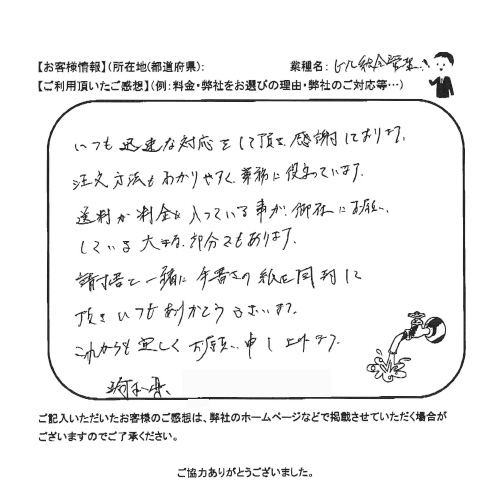 【お客様情報】(所在地(都道府県): 業種名: ビル総合管理
【ご利用頂いたご感想】(例:料金・弊社をお選びの理由・弊社のご対応等…)
いつも迅速な対応をして頂き、感謝しております。
注文方法もわかりやすく、業務に役立っています。
送料が料金に入っている事が、御社にお願い
している大きな部分でもあります。
請求書と一緒に手書きの紙を同封して
頂き、いつもありがとうございます。
これからも宜しくお願い申し上げます。
埼玉県
ご記入いただいたお客様のご感想は、弊社のホームページなどで掲載させていただく場合が
ございますのでご了承ください。
ご協力ありがとうございました。